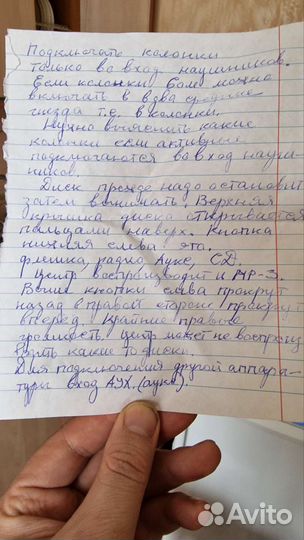 Подключать колонки
только во вход наушников.
Если колонки можно
включать в два средние
гнезда т.е. в колонки.
Нужно выяснить какие
колонки если активные
подключаются во вход науш-
ников.
Диск прежде надо остановит
затем вынимать. Верхняя
крышка диска открывается
пальцами наверх. Кнопка
нижняя слева это.
флешка, радио, Аукс, СД.
Центр воспроизводит и МР-3.
Выше кнопки слева прокрут
назад в правой стороне прокрут
вперед. Крайние правые
громкость. Центр может не воспроиз
водить какие то диски.
Для подключения другой аппара-
туры вход АУХ. (аукс).
Avito